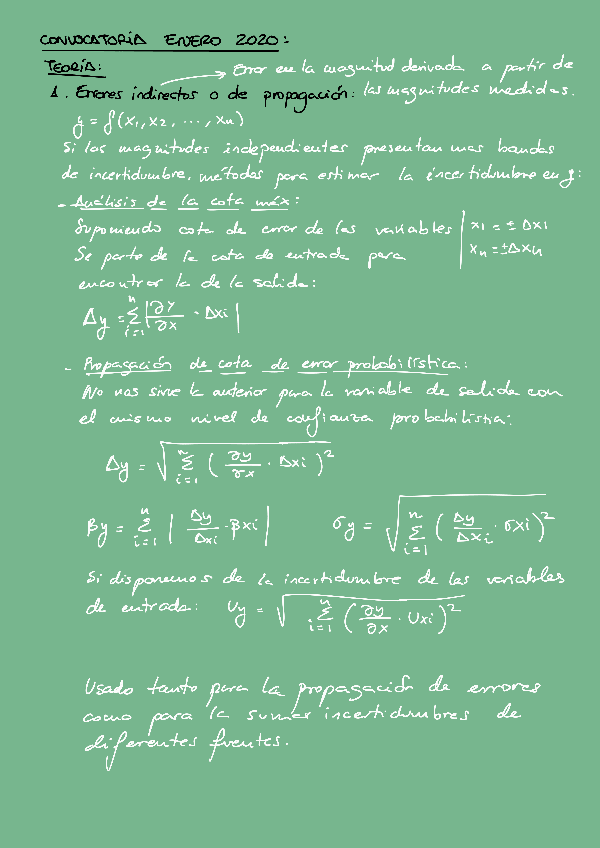 CONVOCATORIA ENERO 2020:
TEORÍA:
→ Error en la magnitud derivada a partir de
1. Errores indirectos o de propagación: las magnitudes medidas.
y = f(x1, x2, ..., xn)
Si las magnitudes independientes presentan unas bandas
de incertidumbre, métodos para estimar la incertidumbre en y:
- Análisis de la cota máx:
Suponiendo cota de error de las variables | x1 = ± Δx1
Se parte de la cota de entrada para | xn = ±Δxn
encontrar la de la salida:
Δy = Σ_{i=1}^{n} |∂y/∂x · Δxi|
- Propagación de cota de error probabilística:
No nos sirve la anterior para la variable de salida con
el mismo nivel de confianza probabilistia:
Δy = √(Σ_{i=1}^{n} (∂y/∂x · Δxi)²)
βy = Σ_{i=1}^{n} |Δy/Δxi · βxi| σy = √(Σ_{i=1}^{n} (Δy/Δxi · σxi)²)
Si disponemos de la incertidumbre de las variables
de entrada: Uy = √(Σ_{i=1}^{n} (∂y/∂x · Uxi)²)
Usado tanto para la propagación de errores
como para la sumar incertidumbres de
diferentes fuentes.